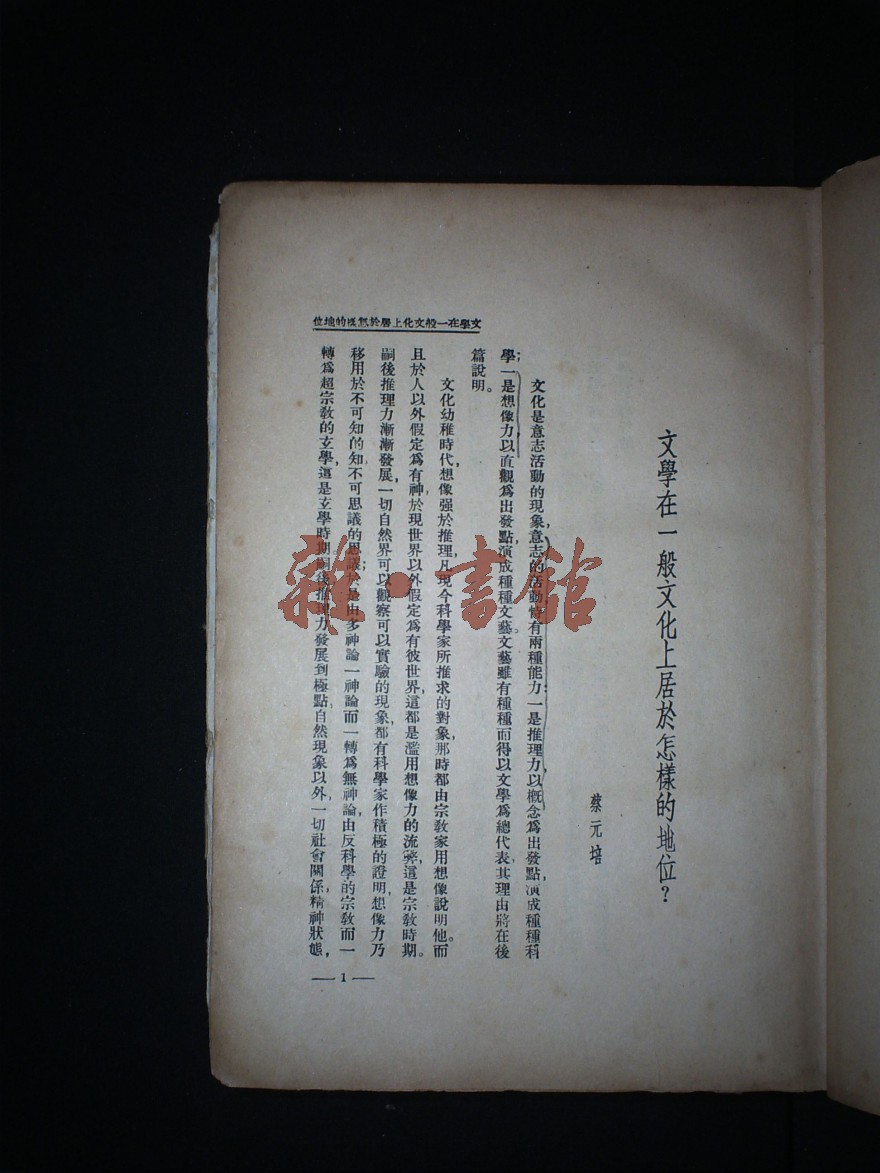 文學在一般文化上居於怎樣的地位？
蔡元培
文化是意志活動的現象，意志的活動，恃有兩種能力：一是推理力，以概念爲出發點，演成種種科
學；一是想像力，以直觀爲出發點，演成種種文藝。文藝雖有種種，而得以文學爲總代表，其理由將在後
篇說明。
文化幼稚時代，想像强於推理，凡現今科學家所推求的對象，那時都由宗敎家用想像說明他。而
且於人以外假定爲有神，於現世界以外假定爲有彼世界，這都是濫用想像力的流弊，這是宗敎時期。
嗣後推理力漸漸發展，一切自然界可以觀察可以實驗的現象，都有科學家作積極的證明，想像力乃
移用於不可知的知，不可思議的思議；於是由多神論一神論而一轉爲無神論，由反科學的宗敎而一
轉爲超宗敎的玄學，這是玄學時期。嗣後推理力發展到極點，自然現象以外，一切社會關係，精神狀態，
文學在一般文化上居於怎樣的地位
— 1 —
雜·書館